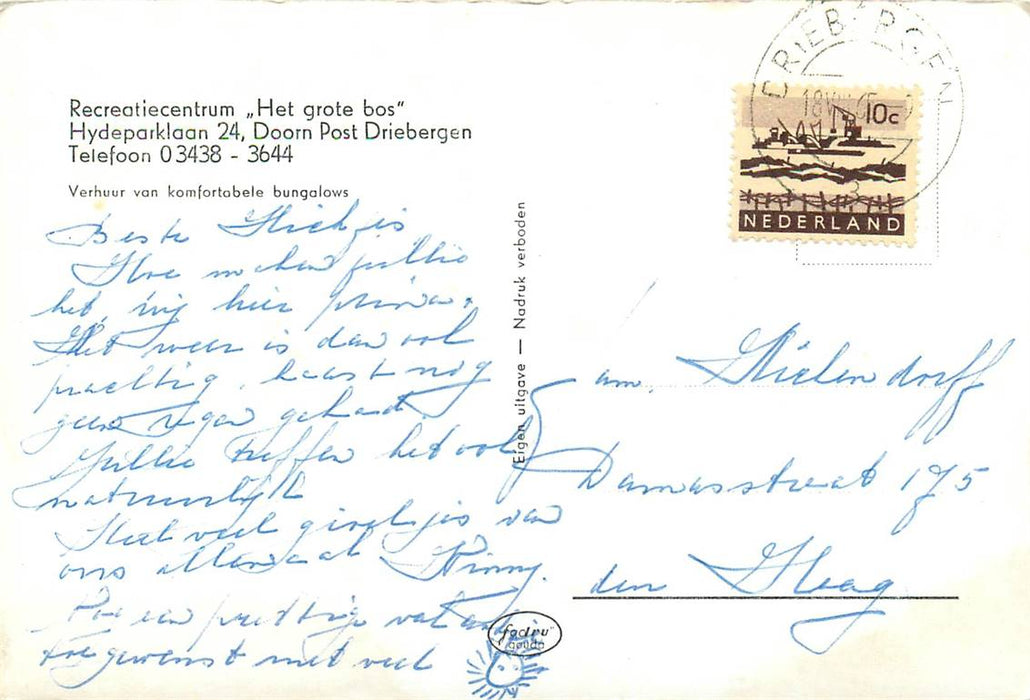 Recreatiecentrum „Het grote bos"
Hydeparklaan 24, Doorn Post Driebergen
Telefoon 03438 - 3644
Verhuur van komfortabele bungalows
Beste
Hoe maken jullie
het, wij hier prima.
Het weer is dan ook
prachtig, haast nog
geen regen gehad.
Jullie treffen het ook
natuurlijk
Heel veel van
ons allemaal
een prettige vakantie
toegewenst met veel
Eigen uitgave — Nadruk verboden
DRIEBERGEN
10c
NEDERLAND
fam.
Damasstraat 175
den Haag
gouda